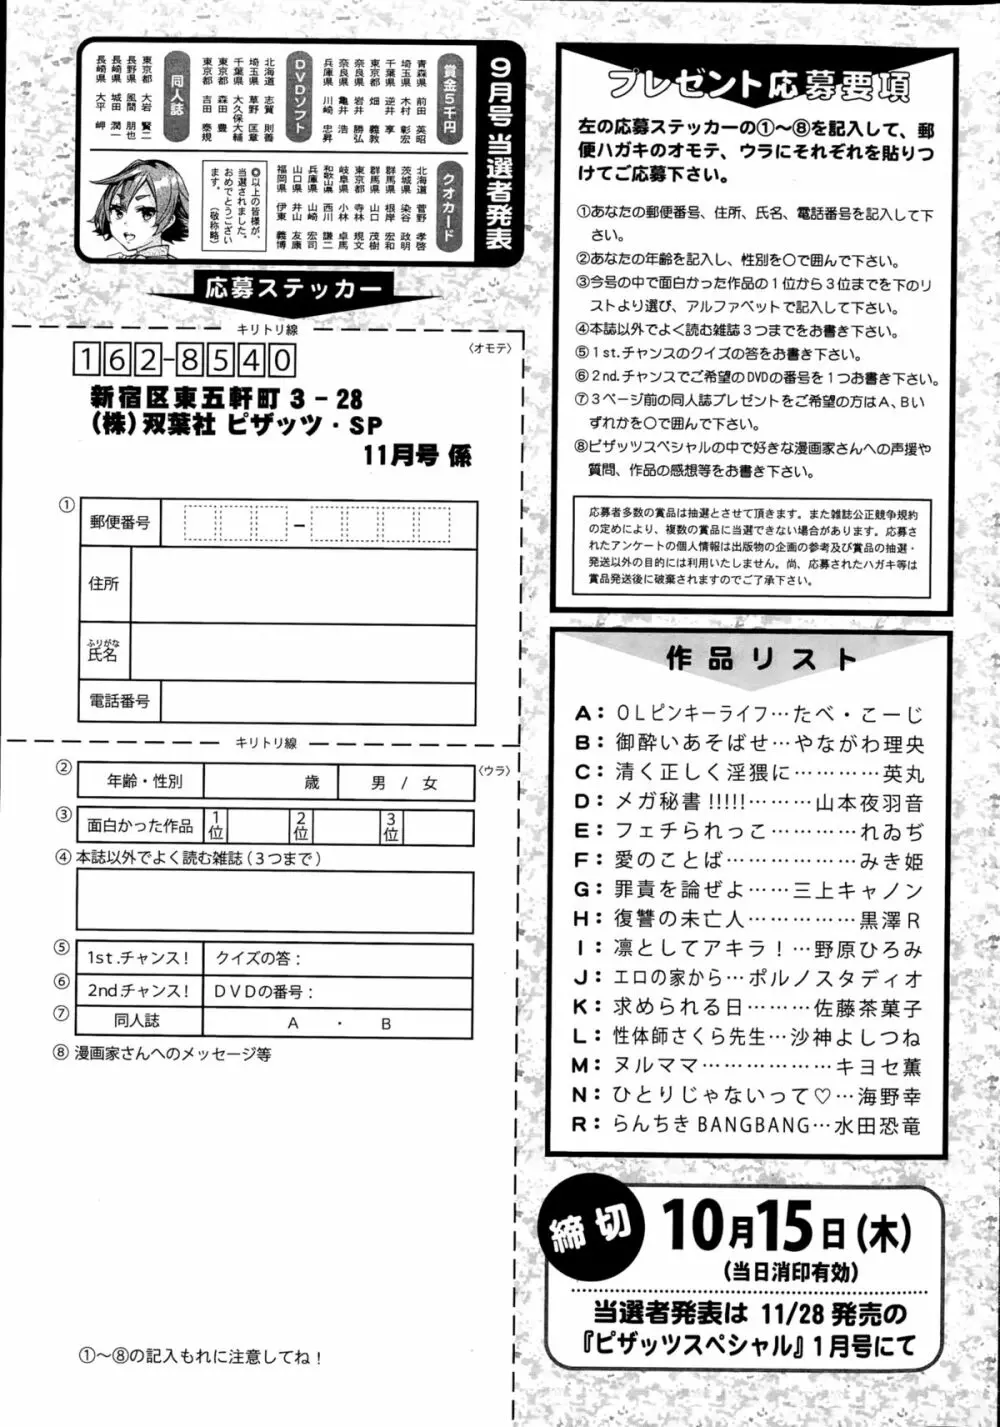 9月号当選者発表
賞金5千円
青森県 前田 英昭
埼玉県 木村 彰宏
千葉県 逆井 享
東京都 畑 義教
奈良県 岩井 勝弘
奈良県 亀井 浩
兵庫県 川崎 忠昇
DVDソフト
北海道 志賀 則善
埼玉県 草野 匡章
千葉県 大久保大輔
東京都 森田 豊
東京都 吉田 泰規
同人誌
東京都 大岩 賢二
長野県 風間 朋也
長崎県 城田 潤一
長崎県 大平 岬
クオカード
北海道 菅野 孝啓
茨城県 染谷 政明
群馬県 根岸 宏和
群馬県 山口 茂樹
東京都 寺林 規文
岐阜県 小林 卓馬
和歌山県 西川 謙二
兵庫県 山崎 宏司
山口県 井山 友康
福岡県 伊東 義博
◎以上の皆様が、
当選されました。
おめでとうござい
ます。 (敬称略)
応募ステッカー
キリトリ線
〈オモテ〉
162-8540
新宿区東五軒町3-28
(株)双葉社 ピザッツ・SP
11月号 係
①
郵便番号
-
住所
ふりがな
氏名
電話番号
キリトリ線
〈ウラ〉
②
年齢・性別 歳 男 / 女
③
面白かった作品 1位 2位 3位
④本誌以外でよく読む雑誌(3つまで)
⑤
1st.チャンス! クイズの答:
⑥
2nd.チャンス! DVDの番号:
⑦
同人誌 A ・ B
⑧ 漫画家さんへのメッセージ等
①〜⑧の記入もれに注意してね!
プレゼント応募要項
左の応募ステッカーの①〜⑧を記入して、郵
便ハガキのオモテ、ウラにそれぞれを貼りつ
けてご応募下さい。
①あなたの郵便番号、住所、氏名、電話番号を記入して下
さい。
②あなたの年齢を記入し、性別を○で囲んで下さい。
③今号の中で面白かった作品の1位から3位までを下のリ
ストより選び、アルファベットで記入して下さい。
④本誌以外でよく読む雑誌3つまでをお書き下さい。
⑤1st.チャンスのクイズの答をお書き下さい。
⑥2nd.チャンスでご希望のDVDの番号を1つお書き下さい。
⑦3ページ前の同人誌プレゼントをご希望の方はA、Bい
ずれかを○で囲んで下さい。
⑧ピザッツスペシャルの中で好きな漫画家さんへの声援や
質問、作品の感想等をお書き下さい。
応募者多数の賞品は抽選とさせて頂きます。また雑誌公正競争規約
の定めにより、複数の賞品に当選できない場合があります。応募さ
れたアンケートの個人情報は出版物の企画の参考及び賞品の抽選・
発送以外の目的には利用いたしません。尚、応募されたハガキ等は
賞品発送後に破棄されますのでご了承下さい。
作品リスト
A:OLピンキーライフ…たべ・こーじ
B:御酔いあそばせ…やながわ理央
C:清く正しく淫猥に…………英丸
D:メガ秘書!!!!!………山本夜羽音
E:フェチられっこ…………れゐぢ
F:愛のことば………………みき姫
G:罪責を論ぜよ……三上キャノン
H:復讐の未亡人……………黒澤R
I:凛としてアキラ!…野原ひろみ
J:エロの家から…ポルノスタディオ
K:求められる日………佐藤茶菓子
L:性体師さくら先生…沙神よしつね
M:ヌルママ………………キヨセ薫
N:ひとりじゃないって♡…海野幸
R:らんちきBANGBANG…水田恐竜
締切
10月15日(木)
(当日消印有効)
当選者発表は 11/28 発売の
『ピザッツスペシャル』1月号にて